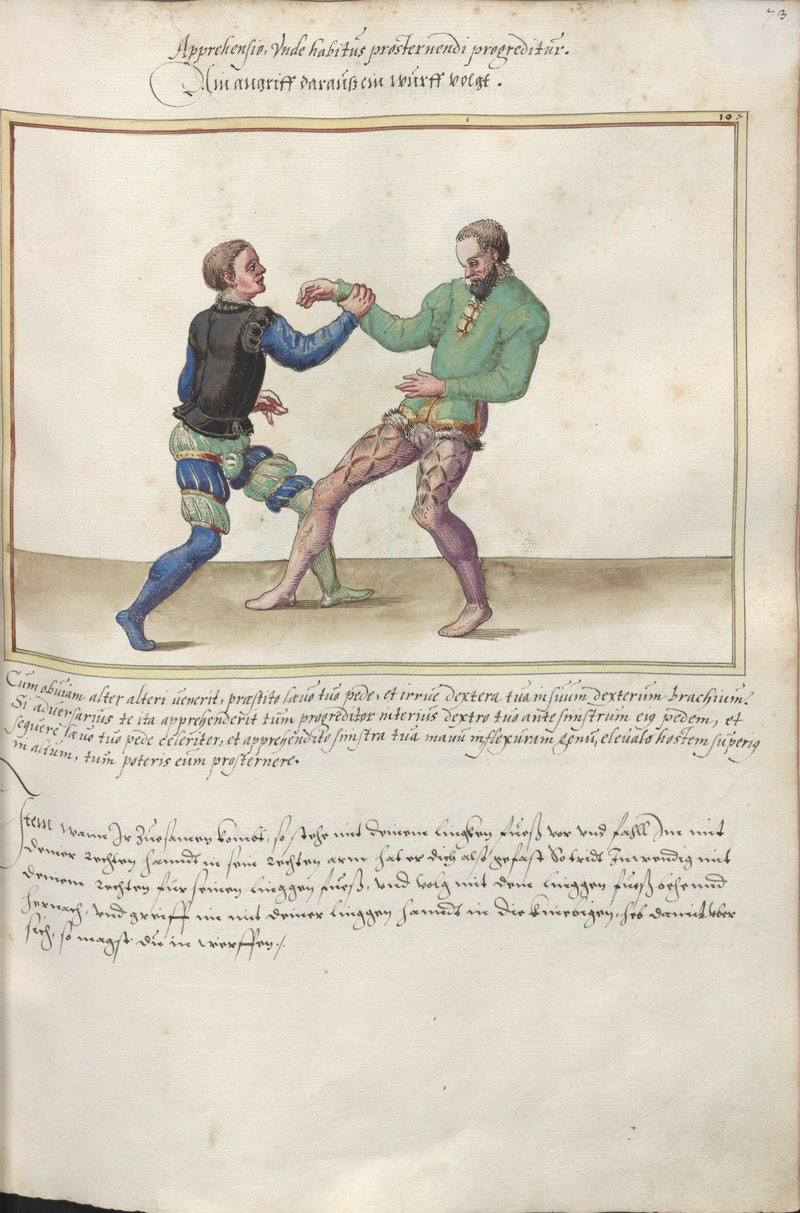 73
Apprehensio, Vnde habitus prosternendi progreditur.
Ain angriff darauß ein wurff volgt.
10
Cum obuiam alter alteri uenerit, præstito læuo tuo pede, et irrue dextera tua in suum dexterum brachium.
Si aduersarius te ita apprehenderit tum progreditor interius dextro tuo ante sinistrum eiq pedem, et
sequere læuo tuo pede celeriter, et apprehendito sinistra tua manu inflexuram genu, eleuato hostem superiq
in altum, tum poteris eum prosternere.
Item wann Ir Zuesamen kombt, so stehe mit deinem lingken fueß vor vnd fahll Im mit
deiner rechten hanndt in sein rechten arm hat er dich alß gefast So tridt Inwendig mit
deinem rechten für seinen linggen fueß, vnd volg mit dem linggen fueß behennd
hernach, vnd greiff im mit deiner linggen hanndt in die kniebigen, heb damit vber
sich, so magst du in werffen ./.